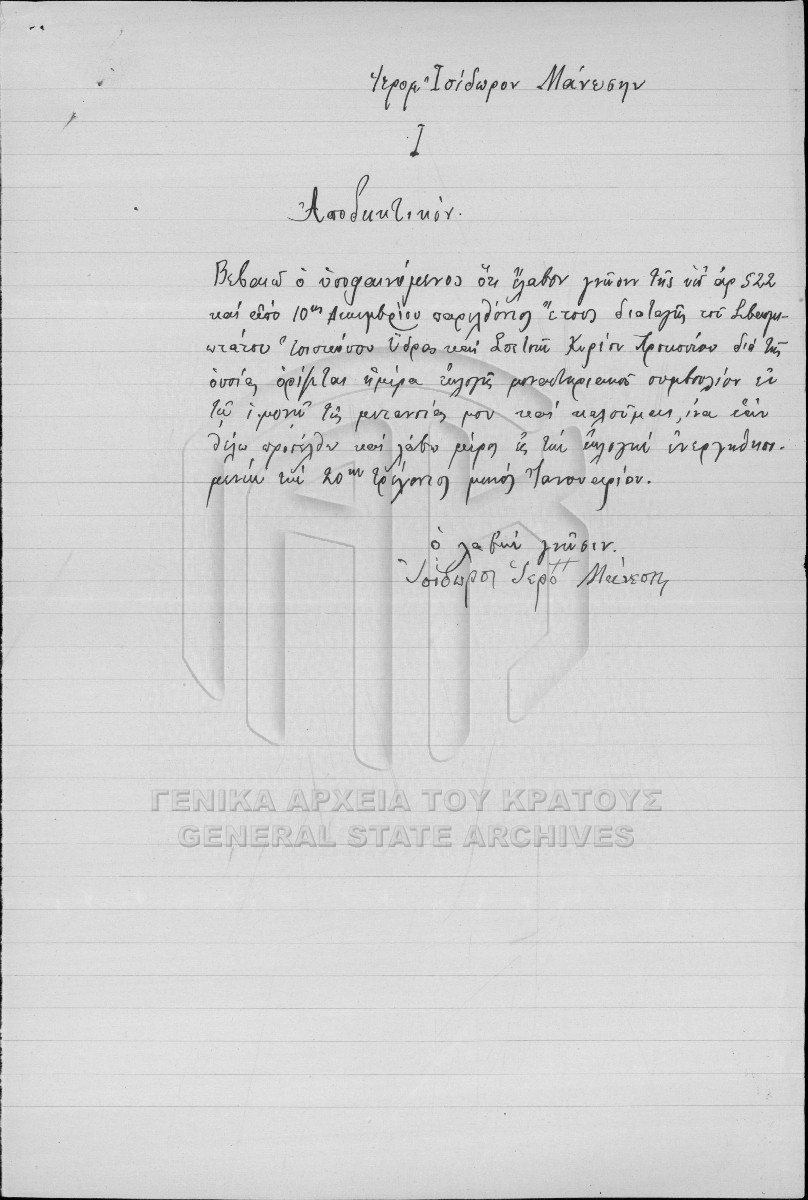 Ἱερομ. Ἰσίδωρον Μάνεσην
Ἀποδεικτικόν.
Βεβαιῶ ὁ ὑποφαινόμενος ὅτι ἔλαβον γνῶσιν τῆς ὑπ' ἀρ 522
καί ἀπό 10ης Δεκεμβρίου παρελθόντος ἔτους διαταγῆς τοῦ Σεβασμι-
ωτάτου Ἐπισκόπου Ὕδρας καί Σπετσῶν Κυρίου Προκοπίου διά τῆς
ὁποίας ὁρίζεται ἡμέρα ἐκλογῆς μοναστηριακοῦ συμβουλίου ἐν
τῇ ἱ μονῇ τῆς μετανοίας μου καί καλοῦμαι, ἵνα ἐάν
θέλω προσέλθω καί λάβω μέρος εἰς τήν ἐκλογήν ἐνεργηθησο-
μένην τήν 20ην τρέχοντος μηνός Ἰανουαρίου.
ὁ λαβών γνῶσιν.
Ἰσίδωρος Ἱερομ Μάνεσης
ΓΕΝΙΚΑ ΑΡΧΕΙΑ ΤΟΥ ΚΡΑΤΟΥΣ
GENERAL STATE ARCHIVES